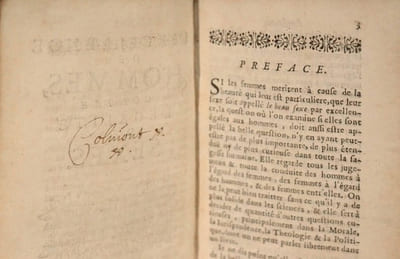 Colmont &.
3
PREFACE.
SI les femmes meritent à cauſe de la
beauté qui leur eſt particuliere, que leur
ſexe ſoit appellé le beau ſexe par excellen-
ce, la queſtion où l'on examine ſi elles ſont
égales aux hommes, doit auſſi eſtre ap-
pellé la belle queſtion, n'y en ayant peut-
eſtre pas de plus importante, de plus éten-
duë ni de plus curieuſe dans toute la ſa-
geſſe humaine. Elle regarde tous les juge-
mens & toute la conduite des hommes à
l'égard des femmes, des femmes à l'égard
des hommes, & des femmes entr'elles. On
ne la peut bien traitter ſans ce qu'il y a de
plus ſolide dans les ſciences, & elle ſert à
decider de quantité d'autres queſtions cu-
rieuſes, principalement dans la Morale,
la Jurisprudence, la Theologie & la Politi-
que, dont on ne peut parler librement dans
un livre.